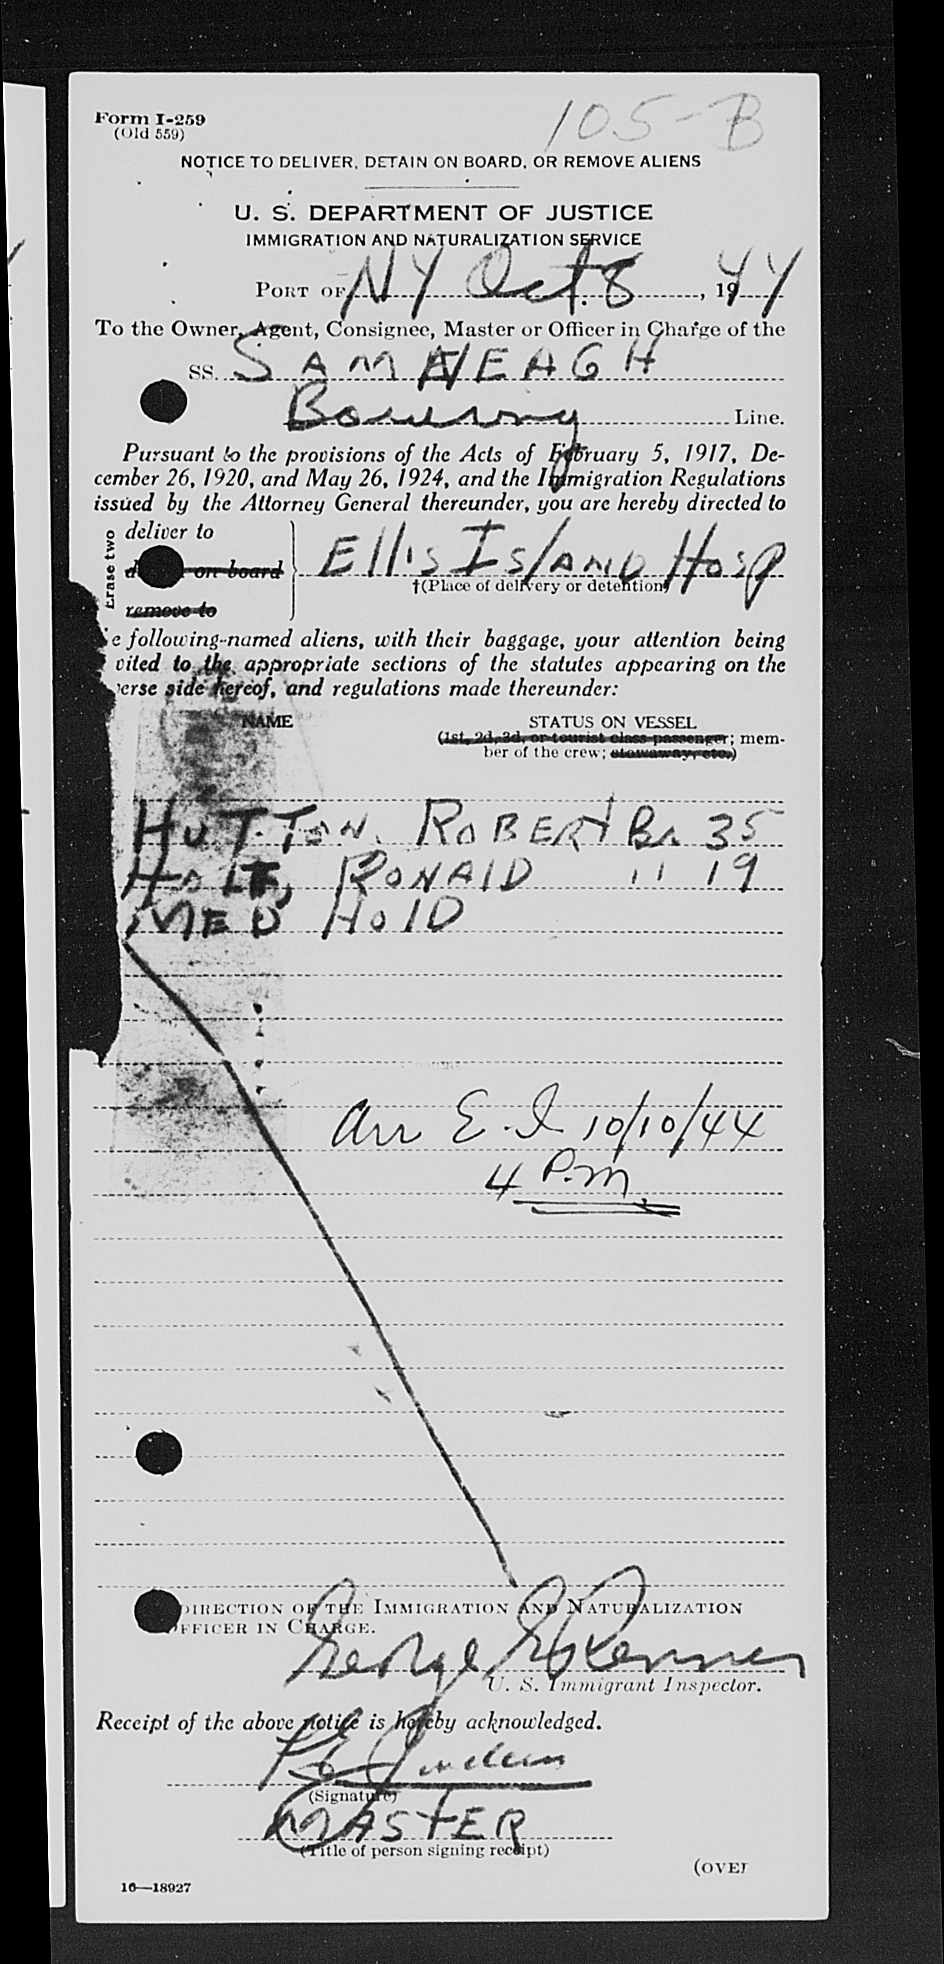 Form I-259
(Old 559)
105-B
NOTICE TO DELIVER, DETAIN ON BOARD, OR REMOVE ALIENS
U. S. DEPARTMENT OF JUSTICE
IMMIGRATION AND NATURALIZATION SERVICE
PORT OF NY Oct 8, 1944
To the Owner, Agent, Consignee, Master or Officer in Charge of the
SS. SAMNEAGH
Line.
Pursuant to the provisions of the Acts of February 5, 1917, De-
cember 26, 1920, and May 26, 1924, and the Immigration Regulations
issued by the Attorney General thereunder, you are hereby directed to
Erase two
deliver to
on board
remove to
Ellis Island Hosp
†(Place of delivery or detention)
e following-named aliens, with their baggage, your attention being
vited to the appropriate sections of the statutes appearing on the
erse side hereof, and regulations made thereunder:
NAME
STATUS ON VESSEL
(1st, 2d, 3d, or tourist class passenger; mem-
ber of the crew; stowaway, etc.)
HUTTON, ROBERT Br 35
HOLT, RONALD " 19
MED HOLD
Arr E.I. 10/10/44
4 P.M.
DIRECTION OF THE IMMIGRATION AND NATURALIZATION
OFFICER IN CHARGE.
George
U. S. Immigrant Inspector.
Receipt of the above notice is hereby acknowledged.
(Signature)
MASTER
(Title of person signing receipt)
(OVER
16—18927